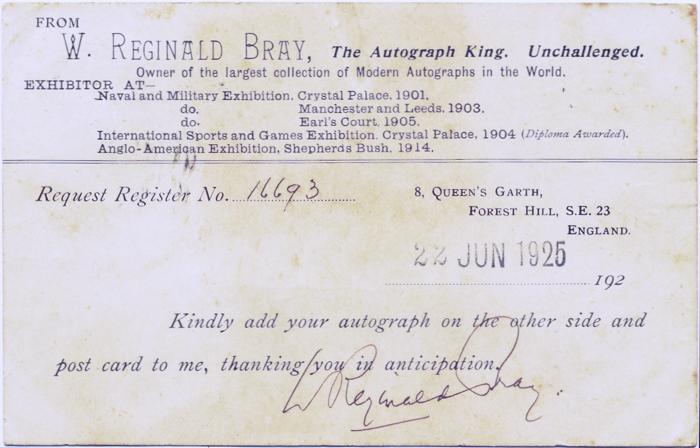 FROM
W. REGINALD BRAY, The Autograph King. Unchallenged.
Owner of the largest collection of Modern Autographs in the World.
EXHIBITOR AT—
Naval and Military Exhibition, Crystal Palace, 1901,
do. Manchester and Leeds, 1903.
do. Earl's Court, 1905.
International Sports and Games Exhibition, Crystal Palace, 1904 (Diploma Awarded).
Anglo-American Exhibition, Shepherds Bush, 1914.
Request Register No. 16693
8, QUEEN'S GARTH,
FOREST HILL, S.E. 23
ENGLAND.
22 JUN 1925
192
Kindly add your autograph on the other side and
post card to me, thanking you in anticipation.
W Reginald Bray.